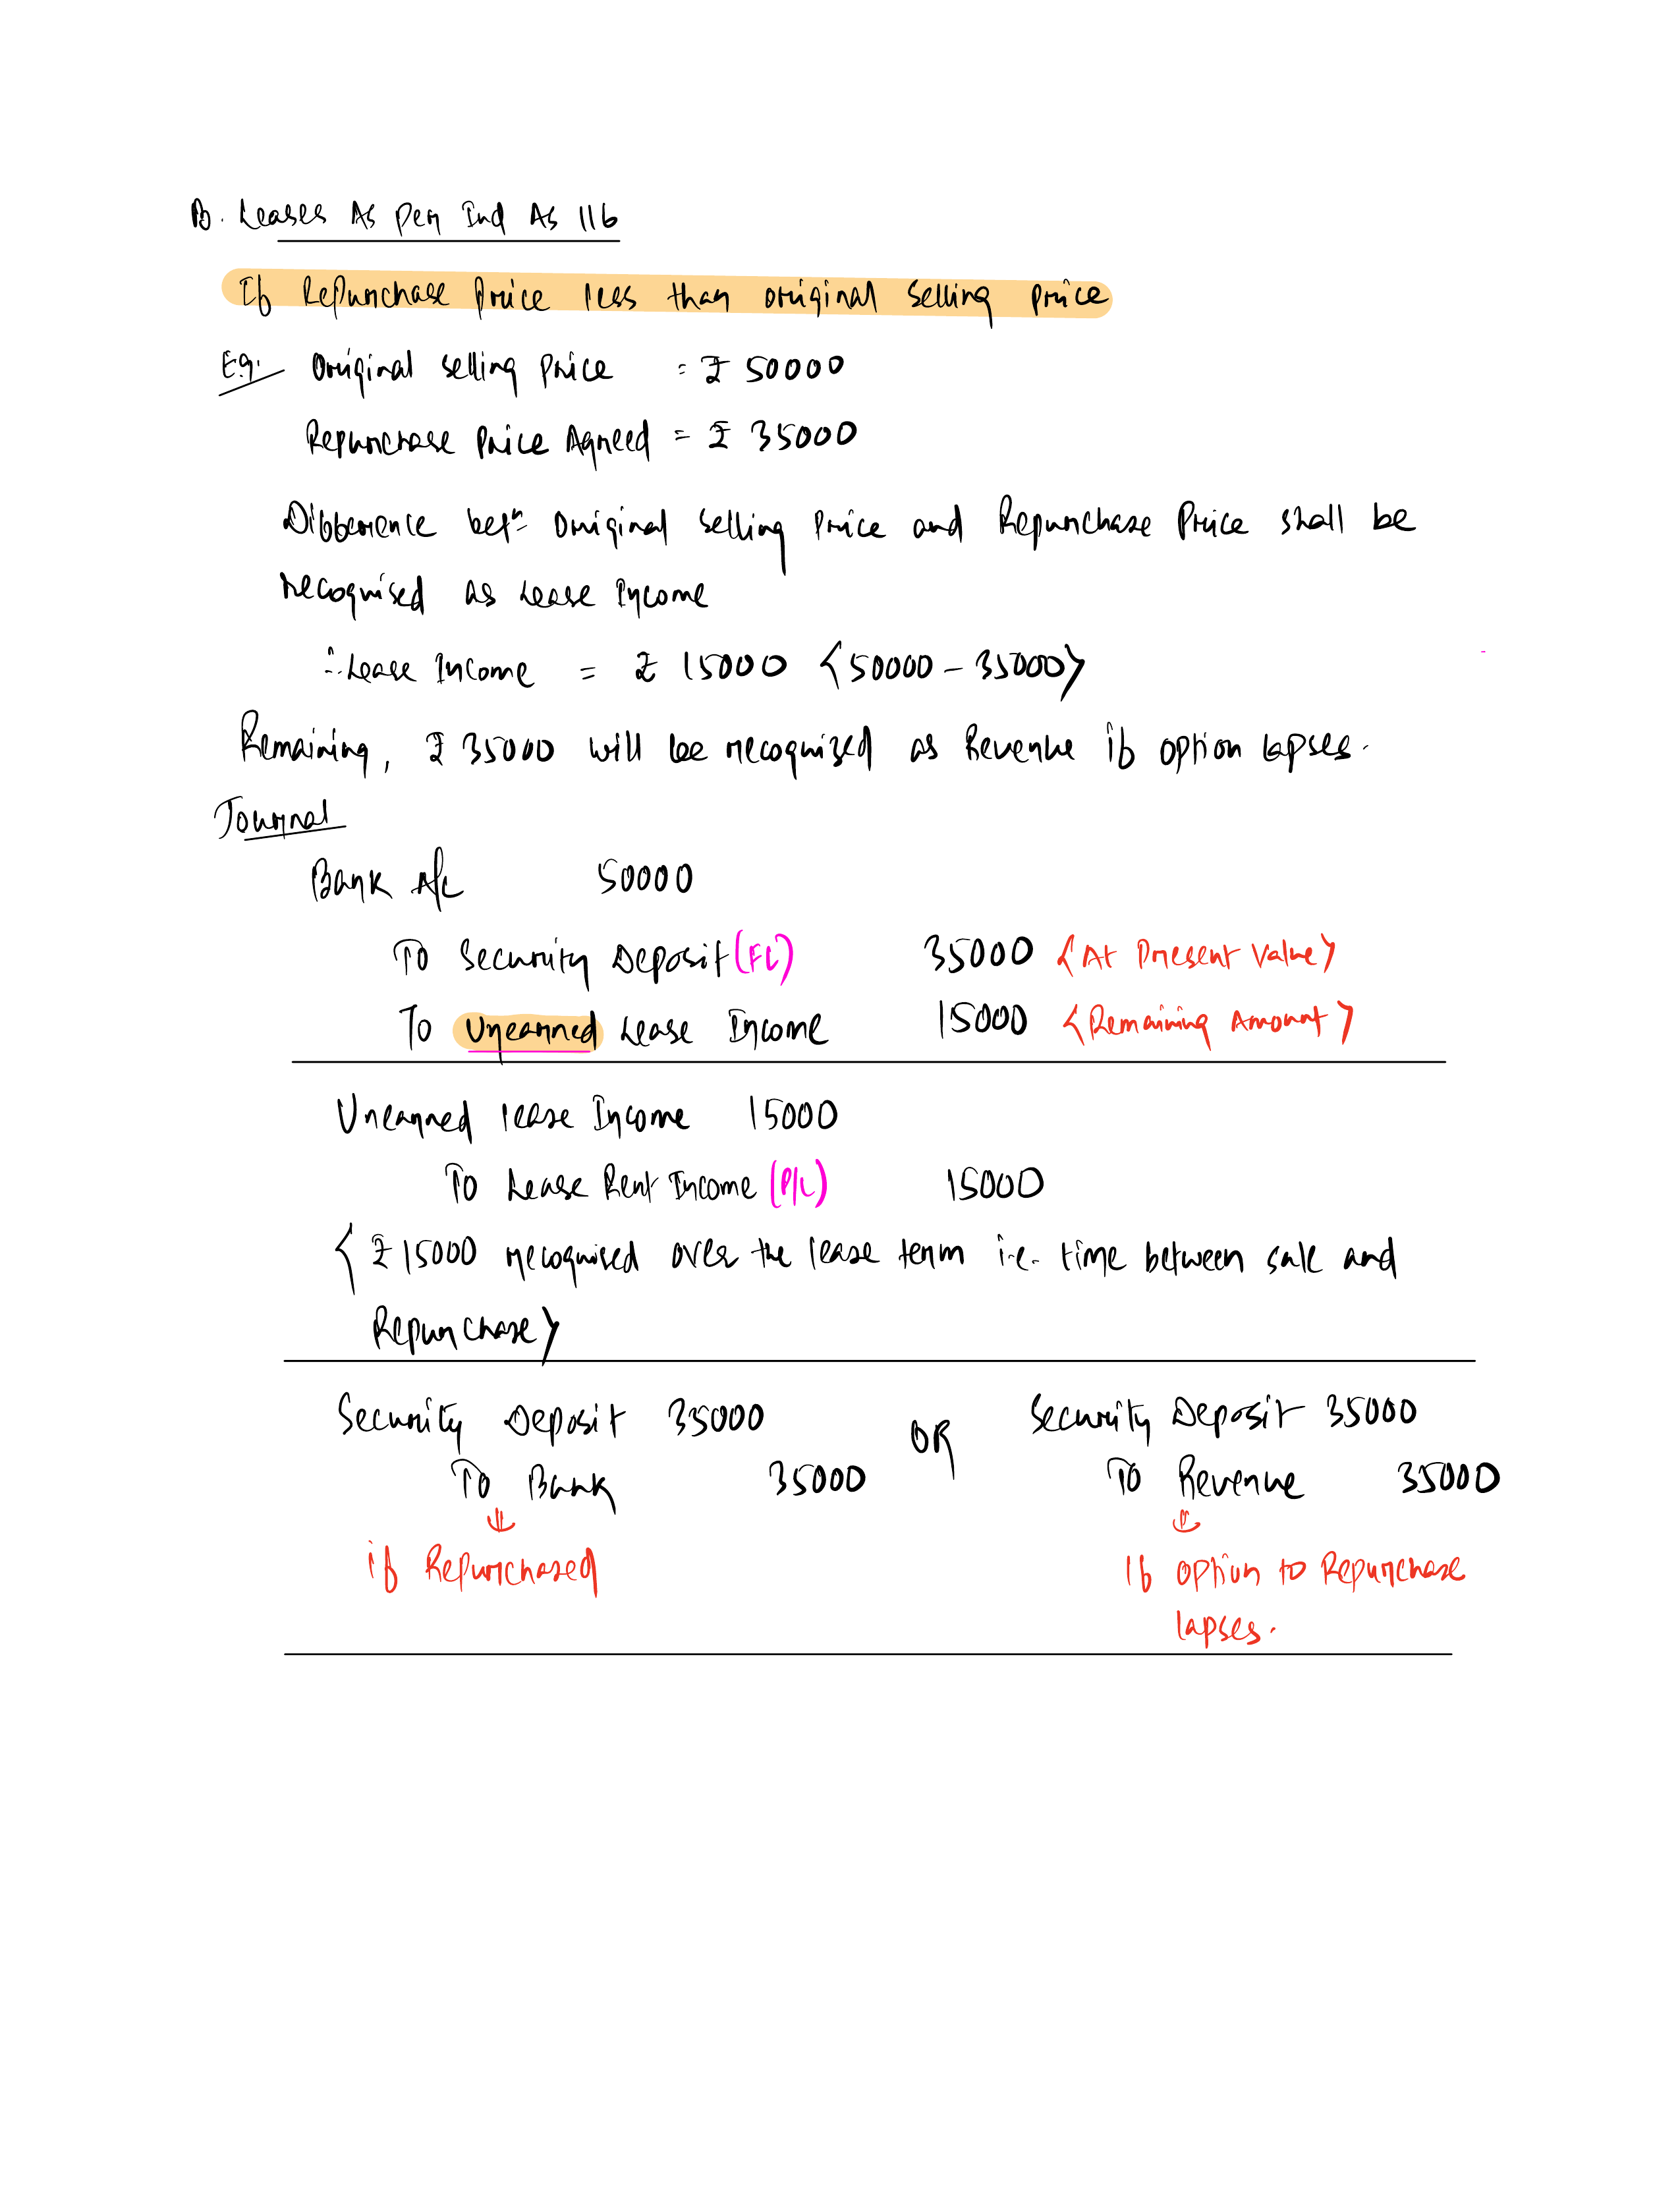 B. Leases As per Ind As 116
If Repurchase Price less than original selling price
Eg. Original selling price = ₹ 50000
Repurchase Price Agreed = ₹ 35000
Difference betn original selling price and Repurchase Price shall be
recognised as lease Income
∴ Lease Income = ₹ 15000 <50000 - 35000>
Remaining, ₹ 35000 will be recognized as Revenue if option lapses.
Journal
Bank A/c 50000
To Security Deposit (FL) 35000 <At Present Value>
To Unearned Lease Income 15000 <Remaining Amount>
Unearned lease Income 15000
To Lease Rent Income (P/L) 15000
< ₹ 15000 recognised over the lease term i.e. time between sale and
Repurchase>
Security Deposit 35000 OR Security Deposit 35000
To Bank 35000 To Revenue 35000
if Repurchased If option to Repurchase
lapses.